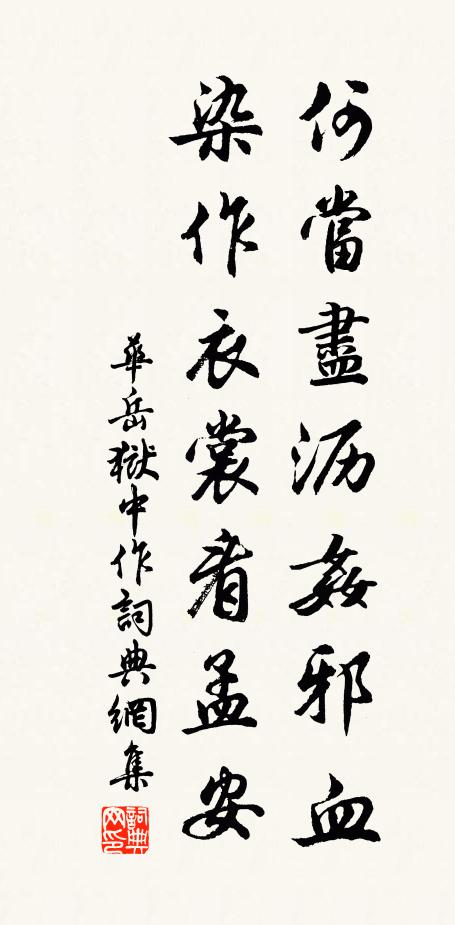 何當盡沥姦邪血
染作衣裳看孟安
華岳獄中作詞典網集
詞典
网印